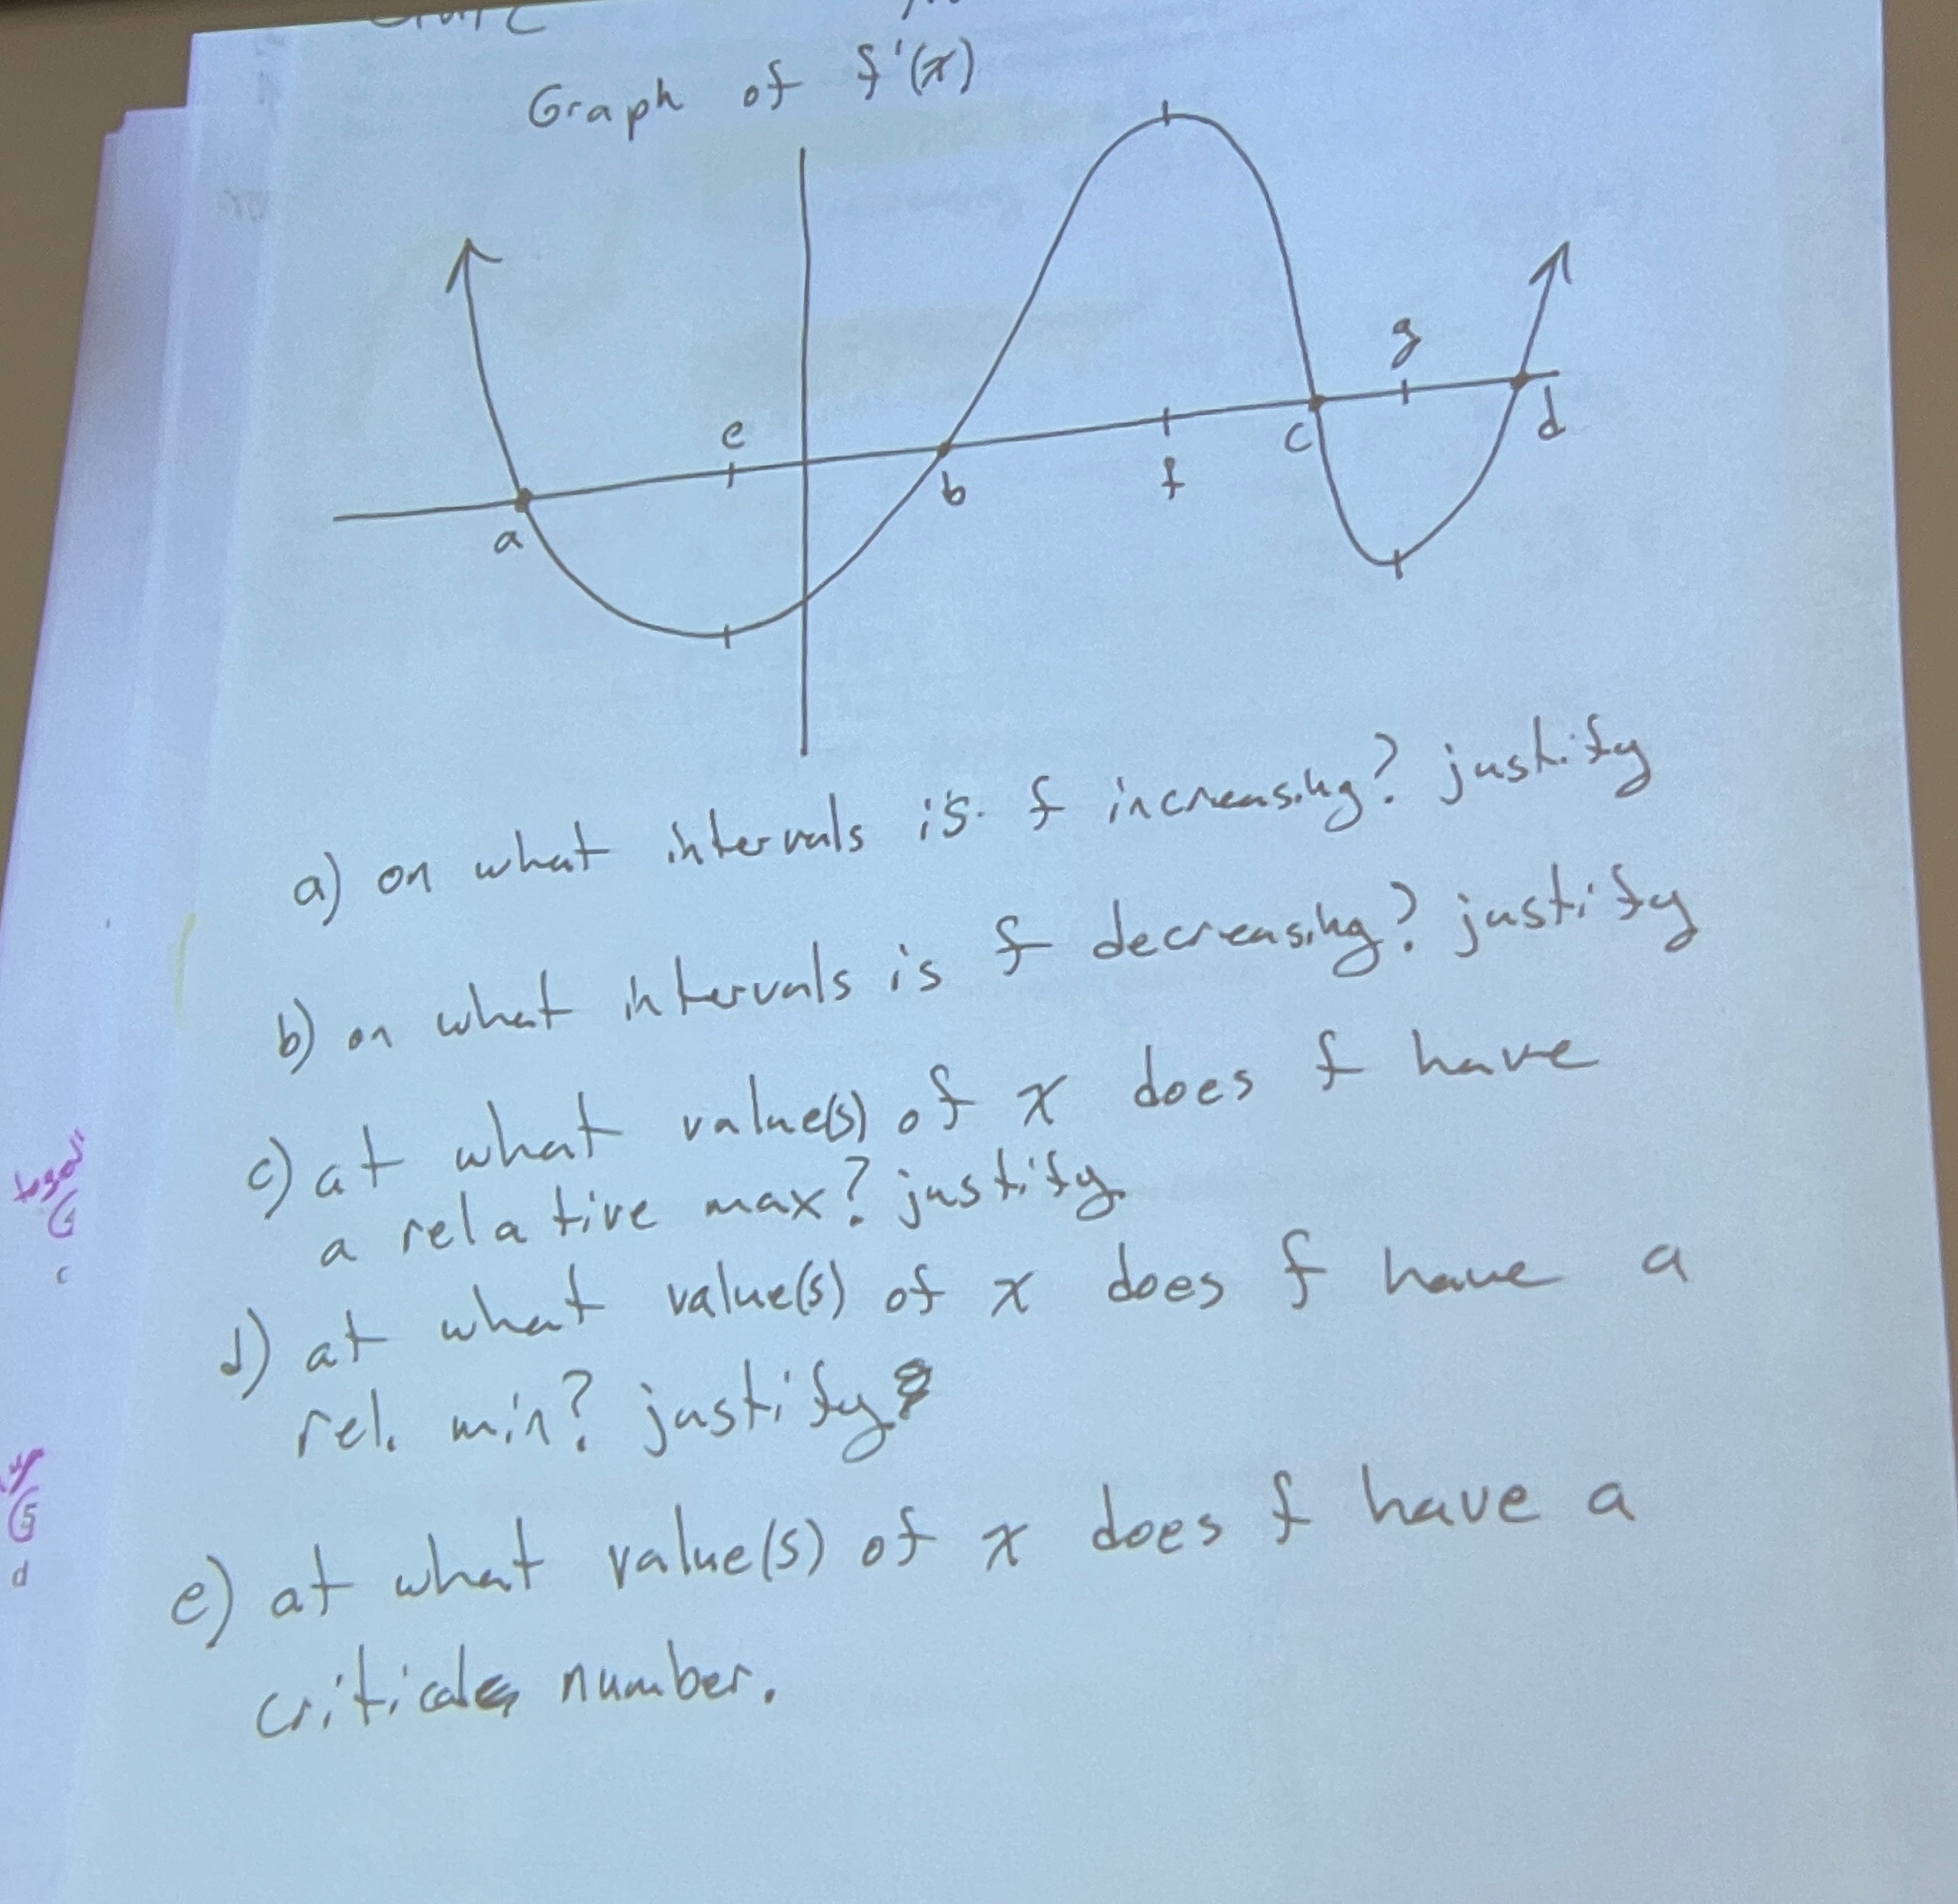 Graph of f'(x)
e
g
a
b
f
c
d
a) on what intervals is f increasing? justify
b) on what intervals is f decreasing? justify
c) at what value(s) of x does f have
a relative max? justify.
d) at what value(s) of x does f have a
rel. min? justify
e) at what value(s) of x does f have a
critical number.
c
5
d